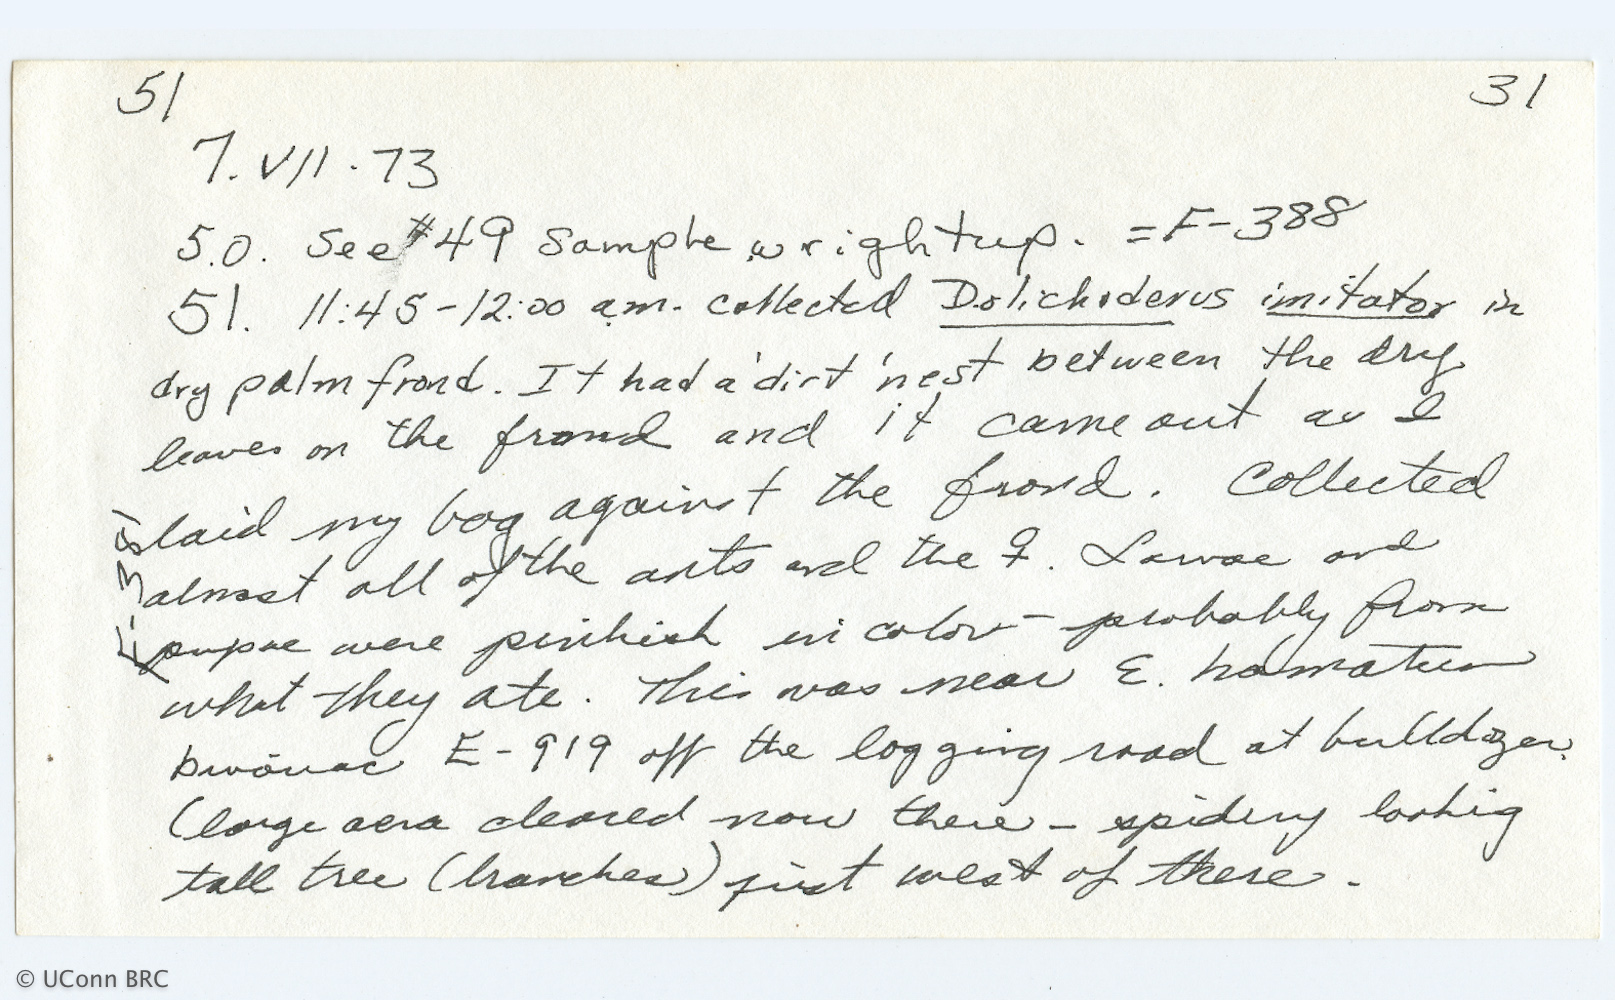 51 31
7. VII. 73
50. See #49 Sample wrightup. = F-388
51. 11:45-12:00 a.m. collected Dolichoderus imitator in
dry palm frond. It had a 'dirt' nest between the dry
leaves on the frond and it came out as I
laid my bag against the frond. Collected
almost all of the ants and the ♀. Larvae and
pupae were pinkish in color - probably from
what they ate. This was near E. hamatum
bivouac E-919 off the logging road at bulldozer.
(large aera cleared now there - spidery looking
tall tree (branches) just west of there.
© UConn BRC